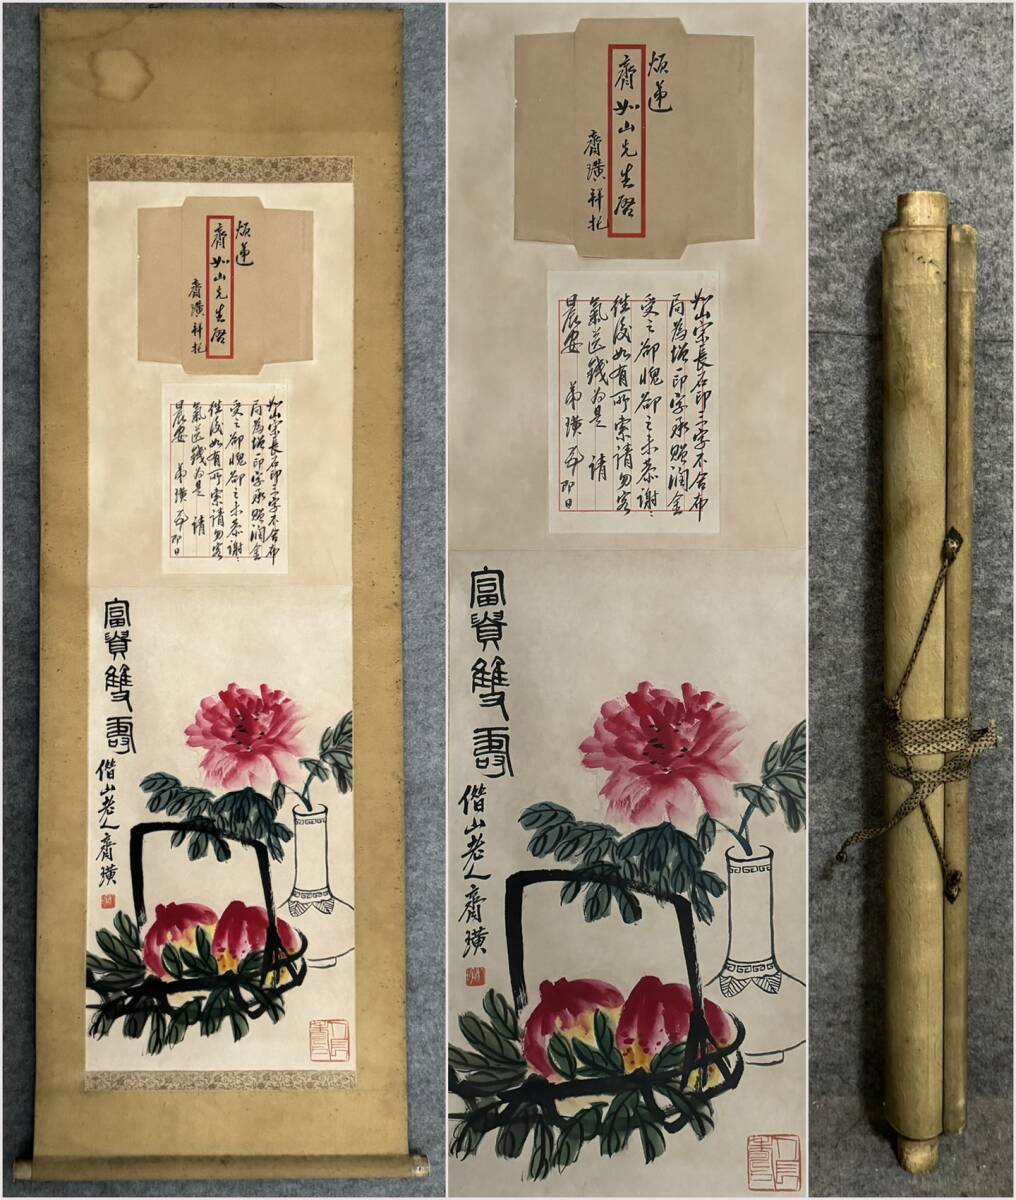 煩遞
齊如山先生啟
齊璜拜托
如山宗長石印二字不合布
局為增一印字承賜潤金
受之卻愧卻之未恭謝謝
往後如有所索請勿客
氣送錢為是 請
晨安 弟璜 即日
富貴雙壽
借山老人齊璜
煩遞
齊如山先生啟
齊璜拜托
如山宗長石印二字不合布
局為增一印字承賜潤金
受之卻愧卻之未恭謝謝
往後如有所索請勿客
氣送錢為是 請
晨安 弟璜 即日
富貴雙壽
借山老人齊璜